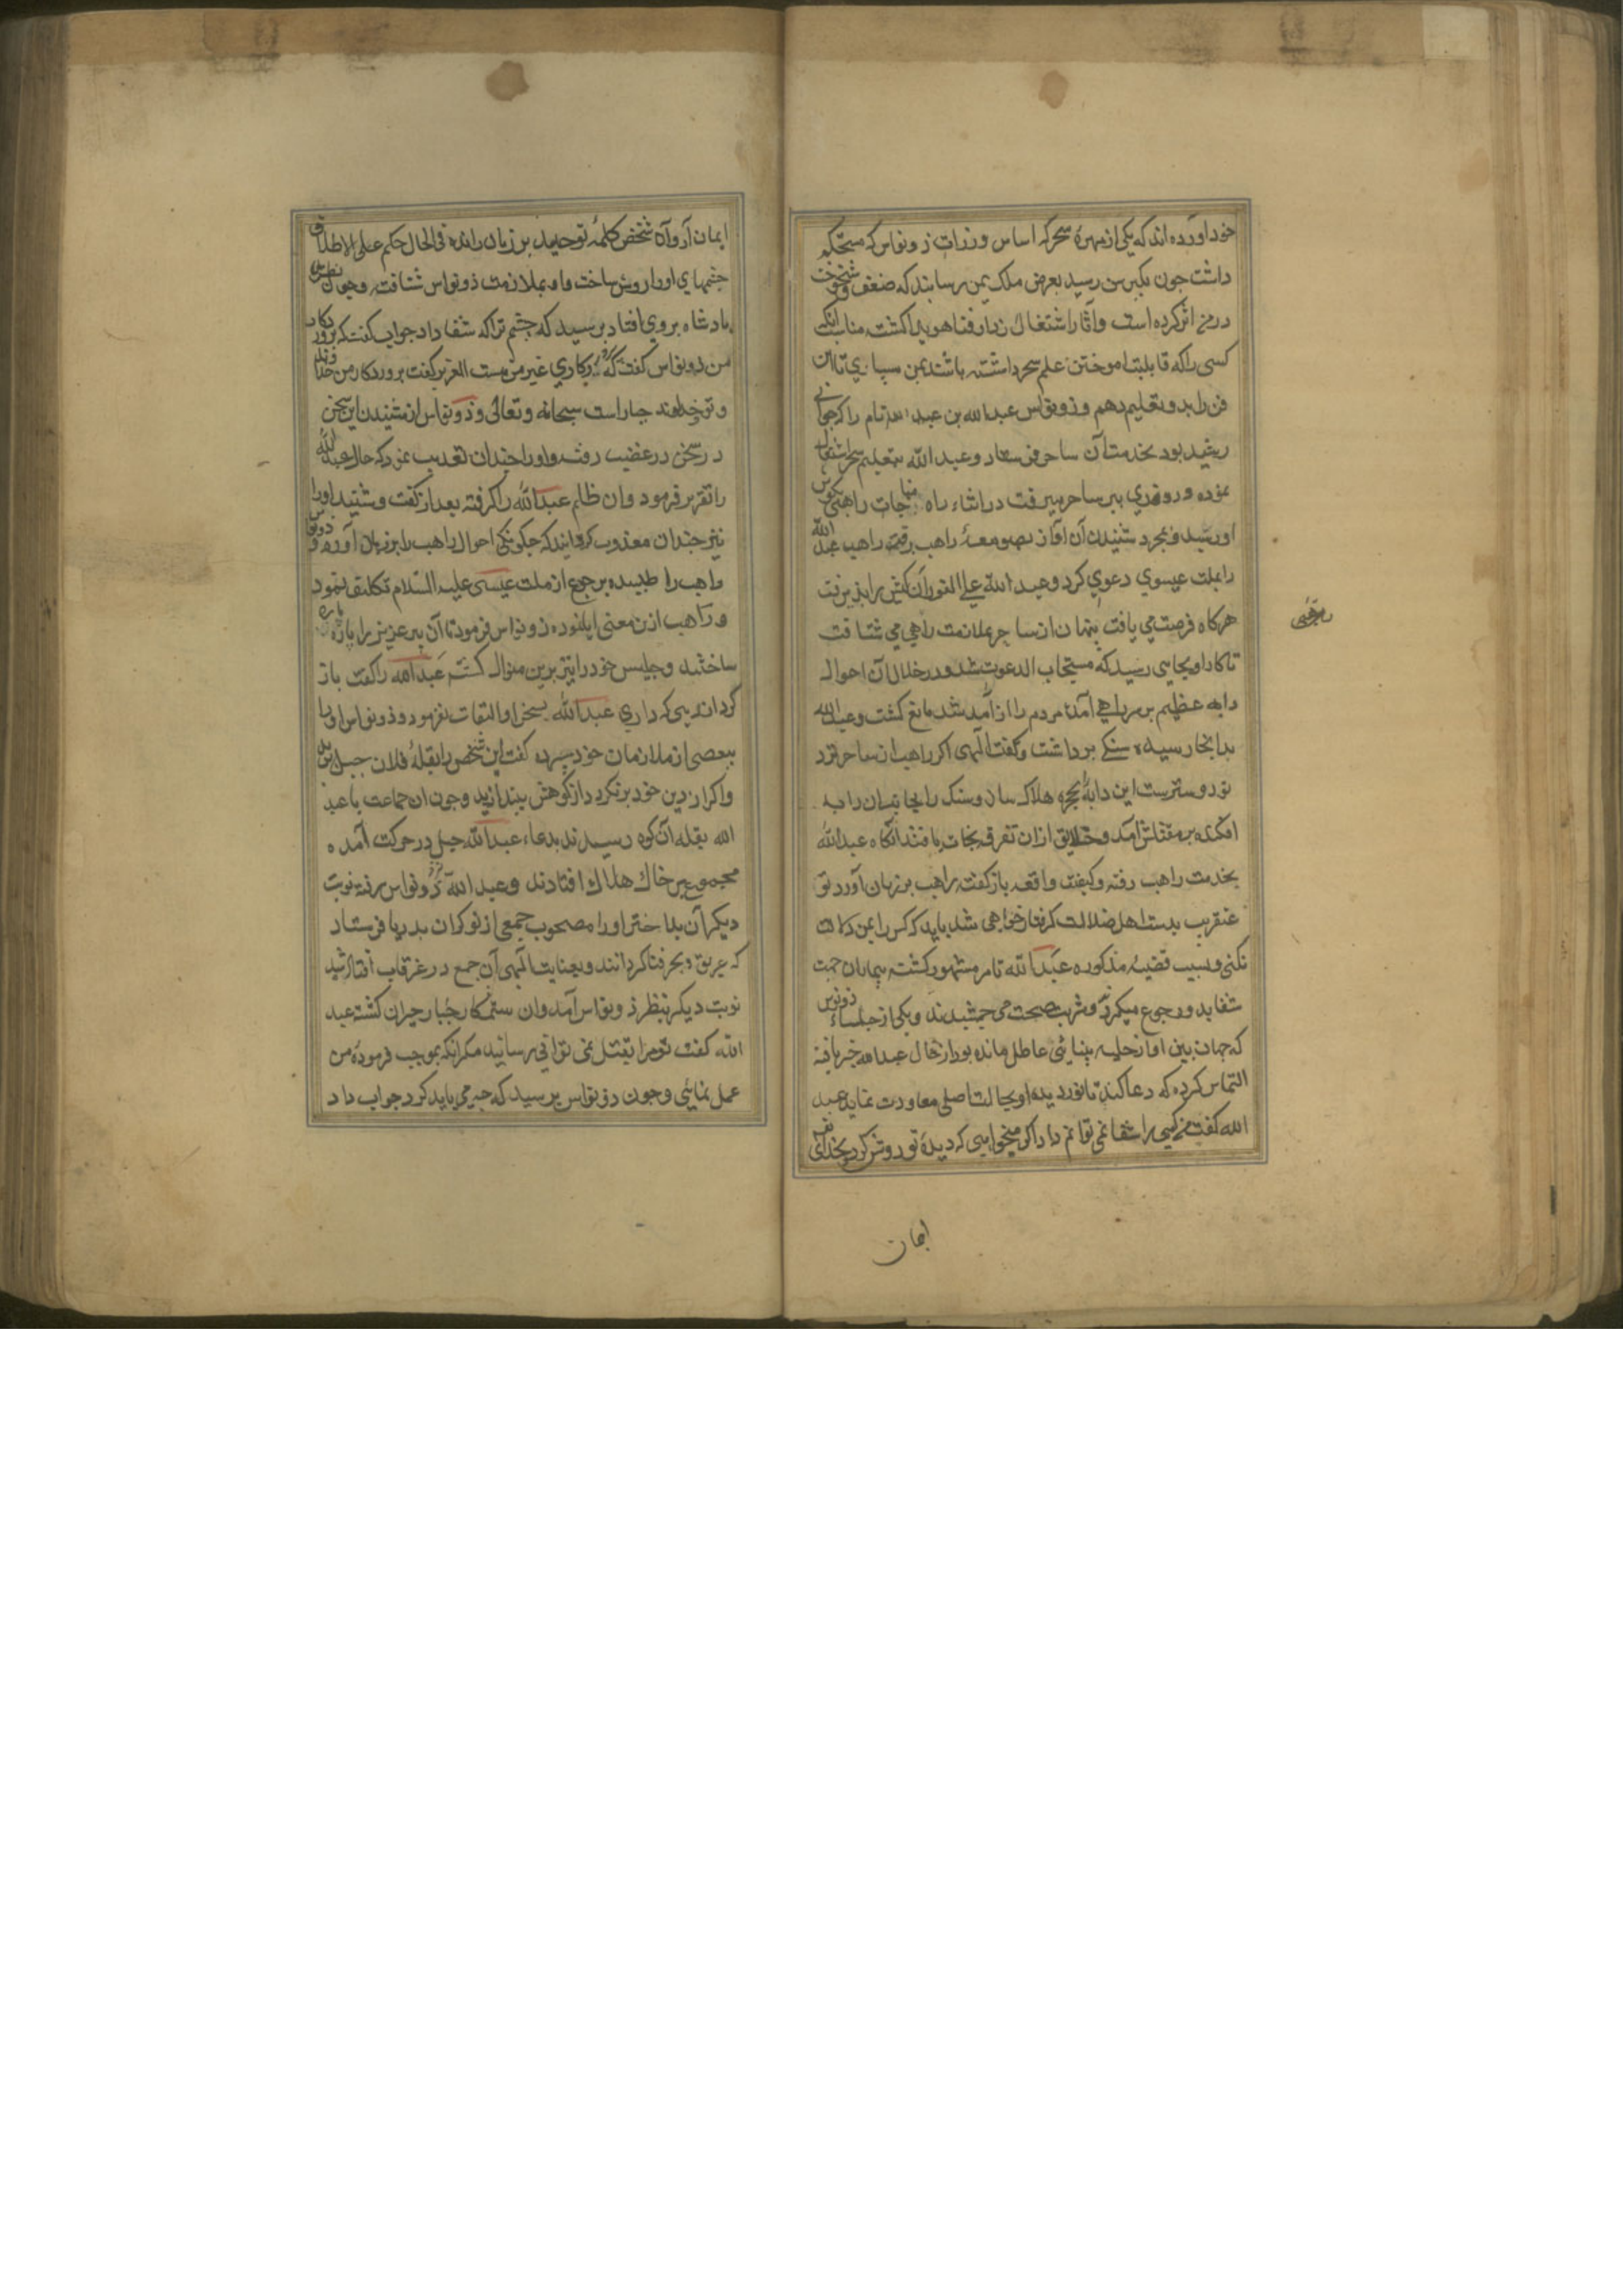 خود آورده اند که یکی از مهرهٔ سحره که اساس وزرات ذونواس که مستحکم
داشت جون بکبر سن رسید بعرض ملک یمن رسانید که ضعف و شیخوخت
در من اثر کرده است وآثار اشتغال زوار فنا هویدا کشت مناسب آنکه
کسی را که قابلیت اموختن علم سحر داشته باشد بمن سپاری تا این
فن را بدو تعلیم دهم و ذونواس عبدالله بن عبد نام را که جوانی
رشید بود بخدمت آن ساحر فرستاد و عبد الله بتعلیم سحر اشتغال
نموده و روزی پیر ساحر میرفت در اثناء راه مناجات راهبی بکوش
اورسید و بمجرد شنیدن آن آواز بصومعهٔ راهب رفت راهب عبد الله
را بملت عیسوی دعوی کرد و عبد الله علی الفور آن کیش را پذیرفت
هرکاه فرصت می یافت پنهان از ساحر بملازمت راهب می شتافت
تا کار او بجایی رسید که مستجاب الدعوت شد و در خلال آن احوال
دابه عظیم بر سر راهی آمده مردم را از آمد شد مانع کشت و عبد الله
بدانجا رسیده سنکی برداشت و کفت الهی اکر راهب از ساحر نزد
تو دوستر ست این دابه را بحجره هلاک سان و سنک را بجانب آن دابه
افکنده بر مقتلش آمد و خلایق ازان تفرقه نجات یافتند آنکاه عبد الله
بخدمت راهب رفته و کیفیت واقعه بازکفت راهب بر زبان آورد تو
عنقریب بدست اهل ضلالت کرفتار خواهی شد باید که کس را بمن دلالت
نکنی و بسبب قضیهٔ مذکوره عبد الله تامر مشهور کشته بیماران جهت
شفا بدو رجوع میکردند و شربت صحت می جشیدند و یکی از جلساء ذونواس
که جهان بین او از حلیه بینائی عاطل مانده بود از حال عبد الله خبر یافته
التماس کرده که دعا کند تا نور دیدهٔ او بحالت اصلی معاودت نماید عبد
الله کفت من کسی را شفا نمی توانم داد اکر میخواهی که دیدهٔ تو روشن کردد بخدای
ایمان
ایمان آر و آن شخص کلمهٔ توحید بر زبان رانده فی الحال حکیم علی الاطلاق
جشمهای او را روشن ساخت و او بملازمت ذونواس شتافت و جون نظر
پادشاه بروی افتاد پرسید که جشم ترا که شفا داد جواب کفت که پروردکار
من ذونواس کفت که پروردکاری غیر من هست العزیز کفت پروردکار من خداوند
و تو خداوند جبار است سبحانه و تعالی و ذونواس از شنیدن این سخن
در غضب رفته و او را جندان تعذیب نمود که حال عبد الله
را تقریر فرمود وان ظالم عبد الله را کرفته بعد از کفت و شنید او را
نیز جندان معذب کردانید که جکونکی احوال راهب را بر زبان آورد و ذونواس
راهب را طلبیده برجوع از ملت عیسی علیه السلام تکلیف نمود
و راهب ازین معنی ابا نموده ذونواس فرمود تا آن پیر عزیز را پاره پاره
ساختند و جلیس خود را نیز برین منوال کشته عبد الله را کفت باز
کرد ازدینی که داری عبد الله بسخن او التفات نفرمود و ذونواس او را
ببعضی از ملازمان خود سپرده کفت این شخص را بقلهٔ فلان جبل برید
واکر از دین خود برنکردد از کوهش بیندازید و جون ان جماعت با عبد
الله بقله آن کوه رسیدند بدعاء عبد الله جبل در حرکت آمده
مجموع بر خاک هلاک افتادند و عبد الله نزد ذونواس رفته نوبت
دیکر آن بد اختر او را مصحوب جمعی از نوکران بدریا فرستاد
که غریق بحر فنا کردانند و بعنایت الهی آن جمع در غرقاب افتاد شید
نوبت دیکر بنظر ذونواس آمد وان ستمکار جبار حیران کشته عبد
الله کفت تو مرا بقتل نمی توانی رسانید مکر آنکه بموجب فرمودهٔ من
عمل نمائی و جون ذونواس پرسید که جه می باید کرد جواب داد